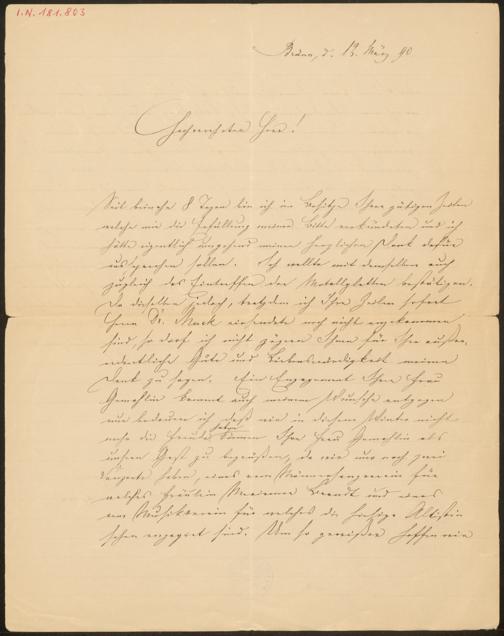 I.N. 181.803
Brünn, d. 13. März 90
Hochverehrter Herr!
Seit beinahe 8 Tagen bin ich im Besitze Ihrer gütigen Zeilen
welche mir die Erfüllung meiner Bitte verkündeten und ich
hätte eigentlich umgehend meinen herzlichen Dank dafür
aussprechen sollen. Ich wollte mit demselben auch
zugleich das Eintreffen der Metallplatten bestätigen.
Da dieselben jedoch, trotzdem ich Ihre Zeilen sofort
Herrn Dr. einsendete noch nicht angekommen
sind, so darf ich nicht zögern Ihnen für Ihre außer-
ordentliche Güte und Liebenswürdigkeit meinen
Dank zu sagen. Ein Engagement Ihrer Frau
Gemahlin kommt auch meinem Wunsche entgegen
nur bedauern ich daß wir in diesem Winter nicht
mehr die Freude haben können Ihre Frau Gemahlin als
unsern Gast zu begrüßen, da wir nur noch zwei
Conzerte haben, eines vom Männergesangverein für
welches Fräulein Marianne Brandt und eines
vom Musikverein für welches die hiesige Altistin
schon engagirt sind. Um so gewisser hoffen wir